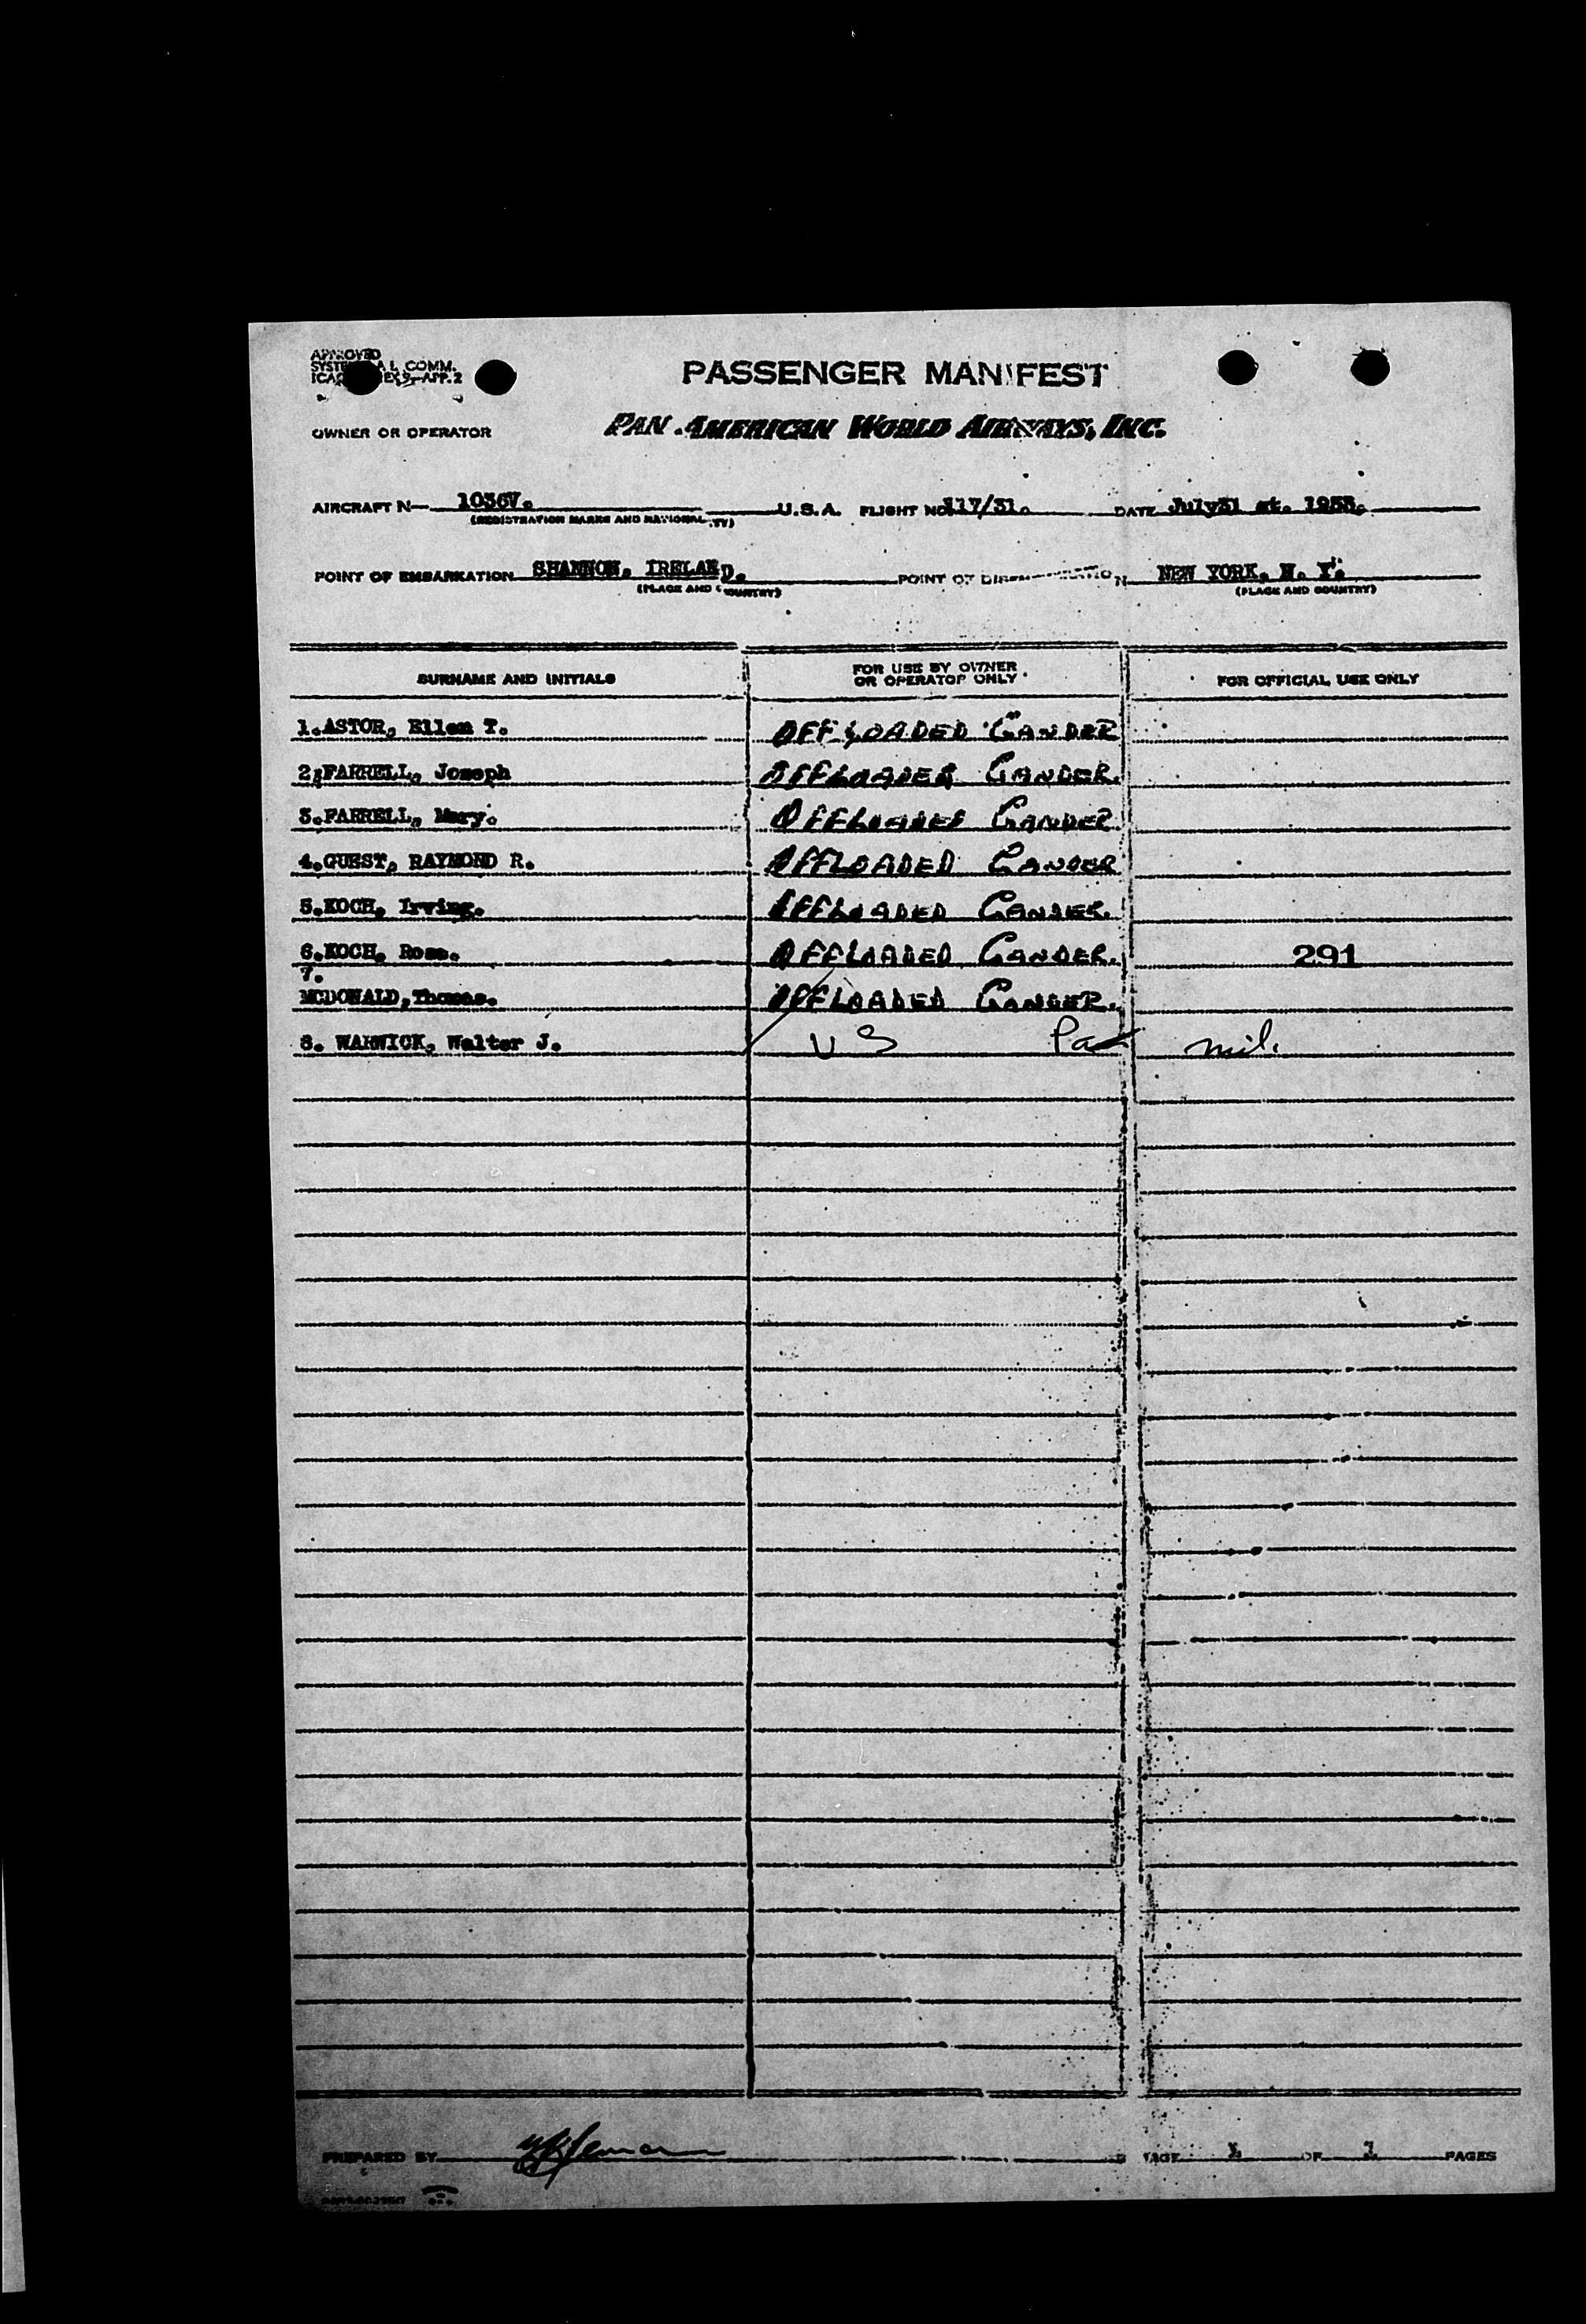 APPROVED
SYSTE A L COMM.
ICAO EX 9-APP. 2
PASSENGER MANIFEST
OWNER OR OPERATOR PAN AMERICAN WORLD AIRWAYS, INC.
AIRCRAFT N— 1036V. U.S.A. FLIGHT NO. 117/31. DATE July31 st. 1955.
(REGISTRATION MARKS AND NATIONALITY)
POINT OF EMBARKATION SHANNON. IRELAND. POINT OF NEW YORK. N. Y.
(PLACE AND COUNTRY) (PLACE AND COUNTRY)
SURNAME AND INITIALS FOR USE BY OWNER OR OPERATOR ONLY FOR OFFICIAL USE ONLY
1.ASTOR, Ellen T. OFFLOADED GANDER
2.FARRELL, Joseph OFFLOADED GANDER.
3.FARRELL, Mary. OFFLOADED GANDER
4.GUEST, RAYMOND R. OFFLOADED GANDER
5.KOCH, Irving. OFFLOADED GANDER.
6.KOCH, Rose. OFFLOADED GANDER. 291
7.
MCDONALD,Thomas. OFFLOADED GANDER.
8. WARWICK, Walter J. US Pas mil.
PREPARED BY PAGE 1 OF 1 PAGES